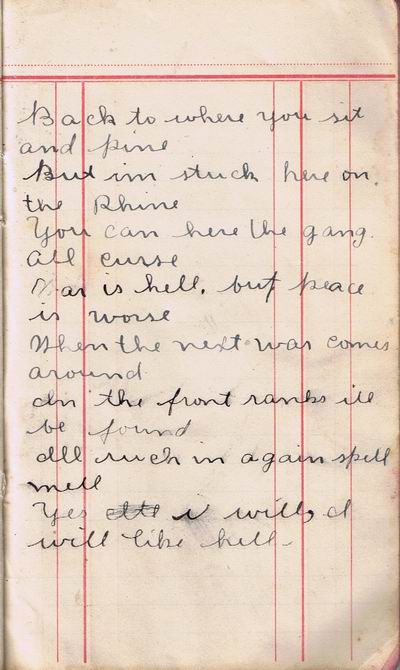 Back to where you sit
and pine
But im stuck here on.
the Rhine
You can here the gang.
all curse
War is hell, but peace
is worse
When the next war comes
around
In the front ranks ill
be found
ill ruch in again spell
mell
Yes i will, I
will like hell.